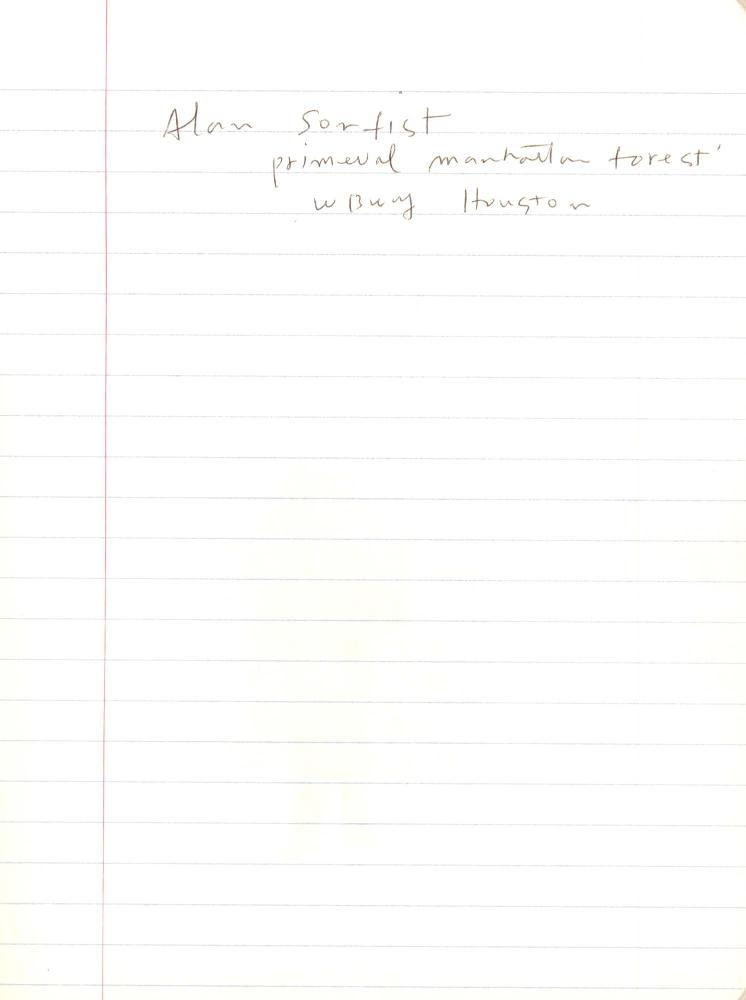 Alan Sonfist
primeval manhattan forest'
w Bwy Houston